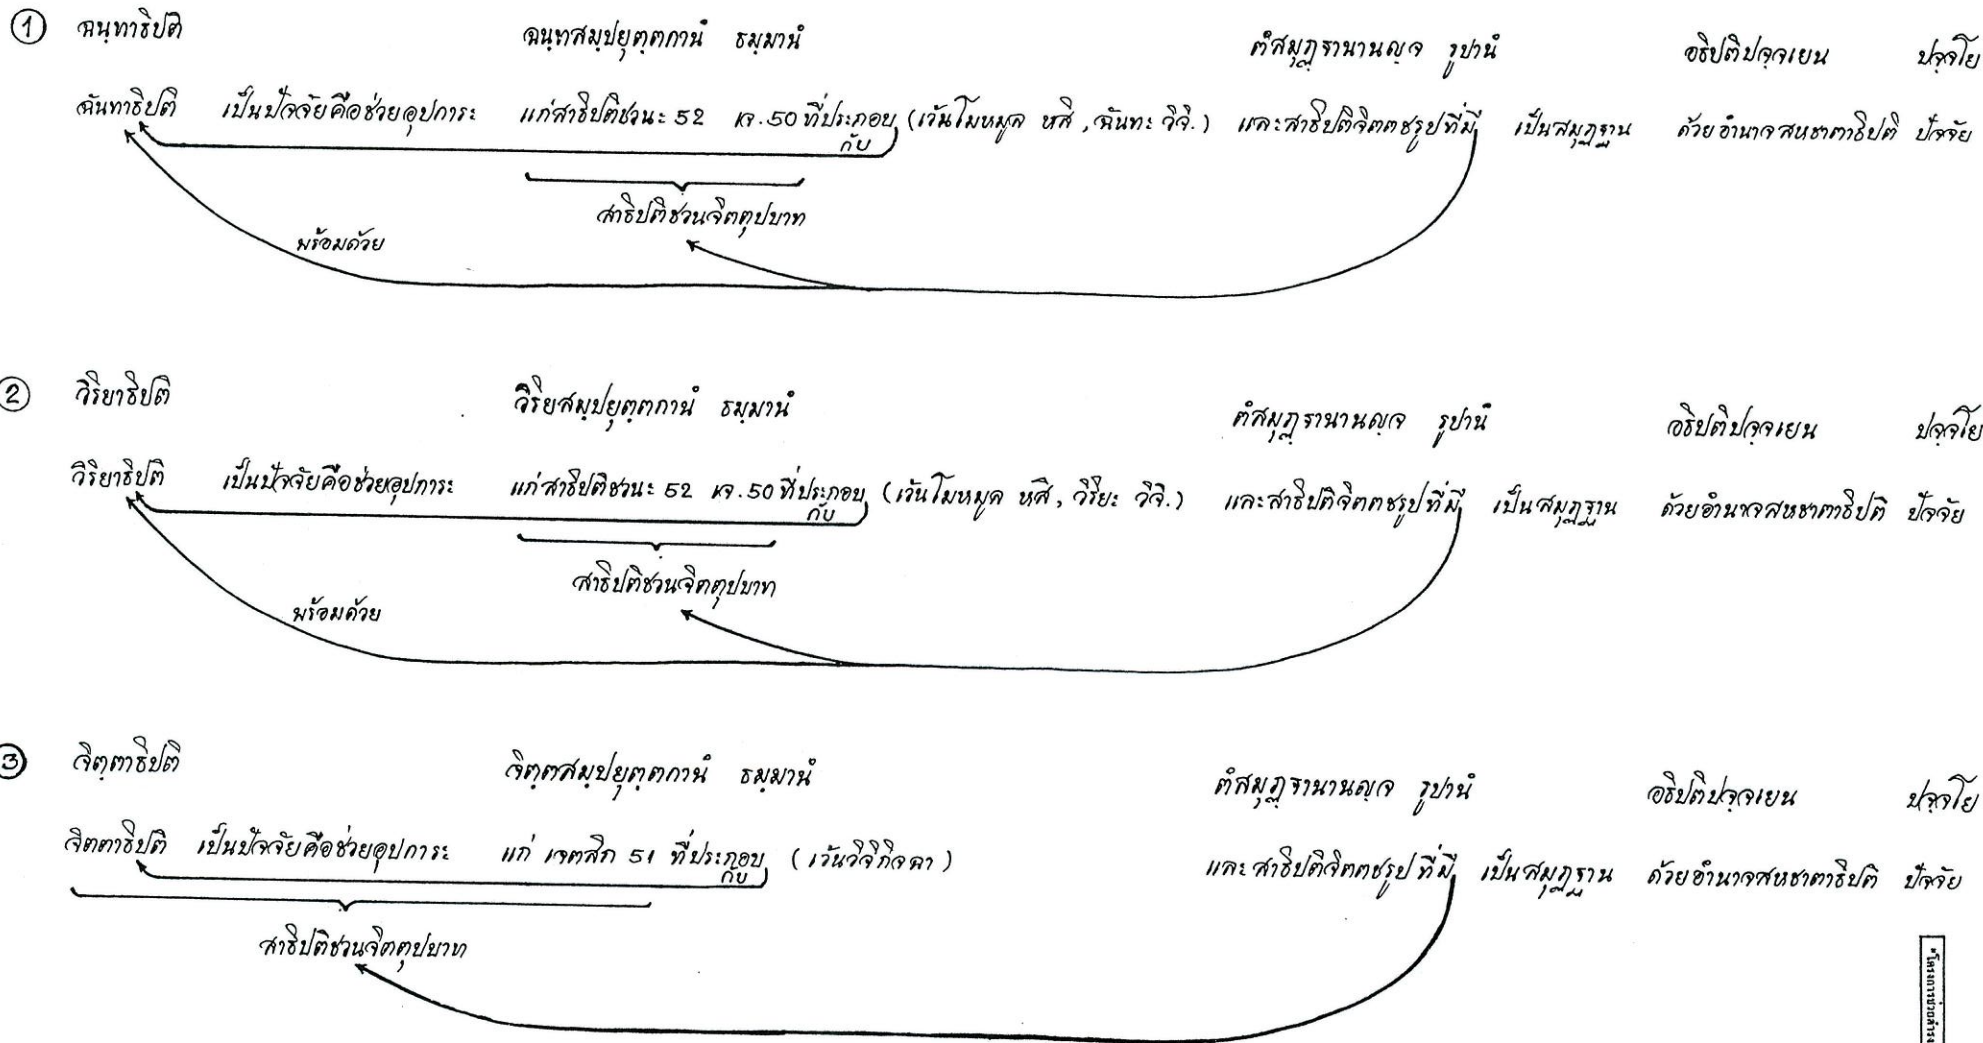 ① ฉนฺทาธิปติ ฉนฺทสมฺปยุตฺตกานํ ธมฺมานํ ตํสมุฏฺฐานานญฺจ รูปานํ อธิปติปจฺจเยน ปจฺจโย
ฉันทาธิปติ เป็นปัจจัยคือช่วยอุปการะ แก่สาธิปติชวนะ 52 เจ.50 ที่ประกอบ (เว้นโมหมูล หสิ, ฉันทะ วิจิ.) และสาธิปติจิตตชรูปที่มี เป็นสมุฏฐาน ด้วยอำนาจสหชาตาธิปติ ปัจจัย
กับ
สาธิปติชวนจิตตุปบาท
พร้อมด้วย
② วิริยาธิปติ วิริยสมฺปยุตฺตกานํ ธมฺมานํ ตํสมุฏฺฐานานญฺจ รูปานํ อธิปติปจฺจเยน ปจฺจโย
วิริยาธิปติ เป็นปัจจัยคือช่วยอุปการะ แก่สาธิปติชวนะ 52 เจ.50 ที่ประกอบ (เว้นโมหมูล หสิ, วิริยะ วิจิ.) และสาธิปติจิตตชรูปที่มี เป็นสมุฏฐาน ด้วยอำนาจสหชาตาธิปติ ปัจจัย
กับ
สาธิปติชวนจิตตุปบาท
พร้อมด้วย
③ จิตฺตาธิปติ จิตฺตสมฺปยุตฺตกานํ ธมฺมานํ ตํสมุฏฺฐานานญฺจ รูปานํ อธิปติปจฺจเยน ปจฺจโย
จิตตาธิปติ เป็นปัจจัยคือช่วยอุปการะ แก่ เจตสิก 51 ที่ประกอบ (เว้นวิจิกิจฉา) และสาธิปติจิตตชรูปที่มี เป็นสมุฏฐาน ด้วยอำนาจสหชาตาธิปติ ปัจจัย
กับ
สาธิปติชวนจิตตุปบาท